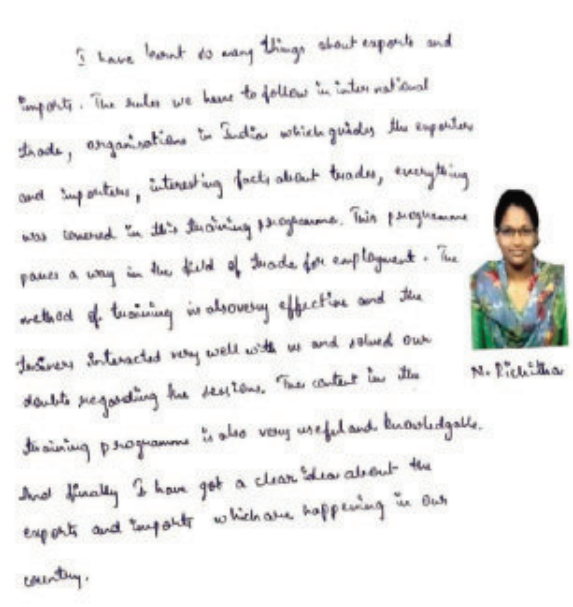 I have learnt so many things about exports and
imports. The rules we have to follow in international
trade, organisations in India which guides the exporters
and importers, interesting facts about trades, everything
was covered in this training programme. This programme
paves a way in the field of trade for employment. The
method of training is also very effective and the
trainers interacted very well with us and solved our
doubts regarding the sessions. The content in the
training programme is also very useful and knowledgable.
And finally I have got a clear idea about the
exports and imports which are happening in our
country.
N. Richitha